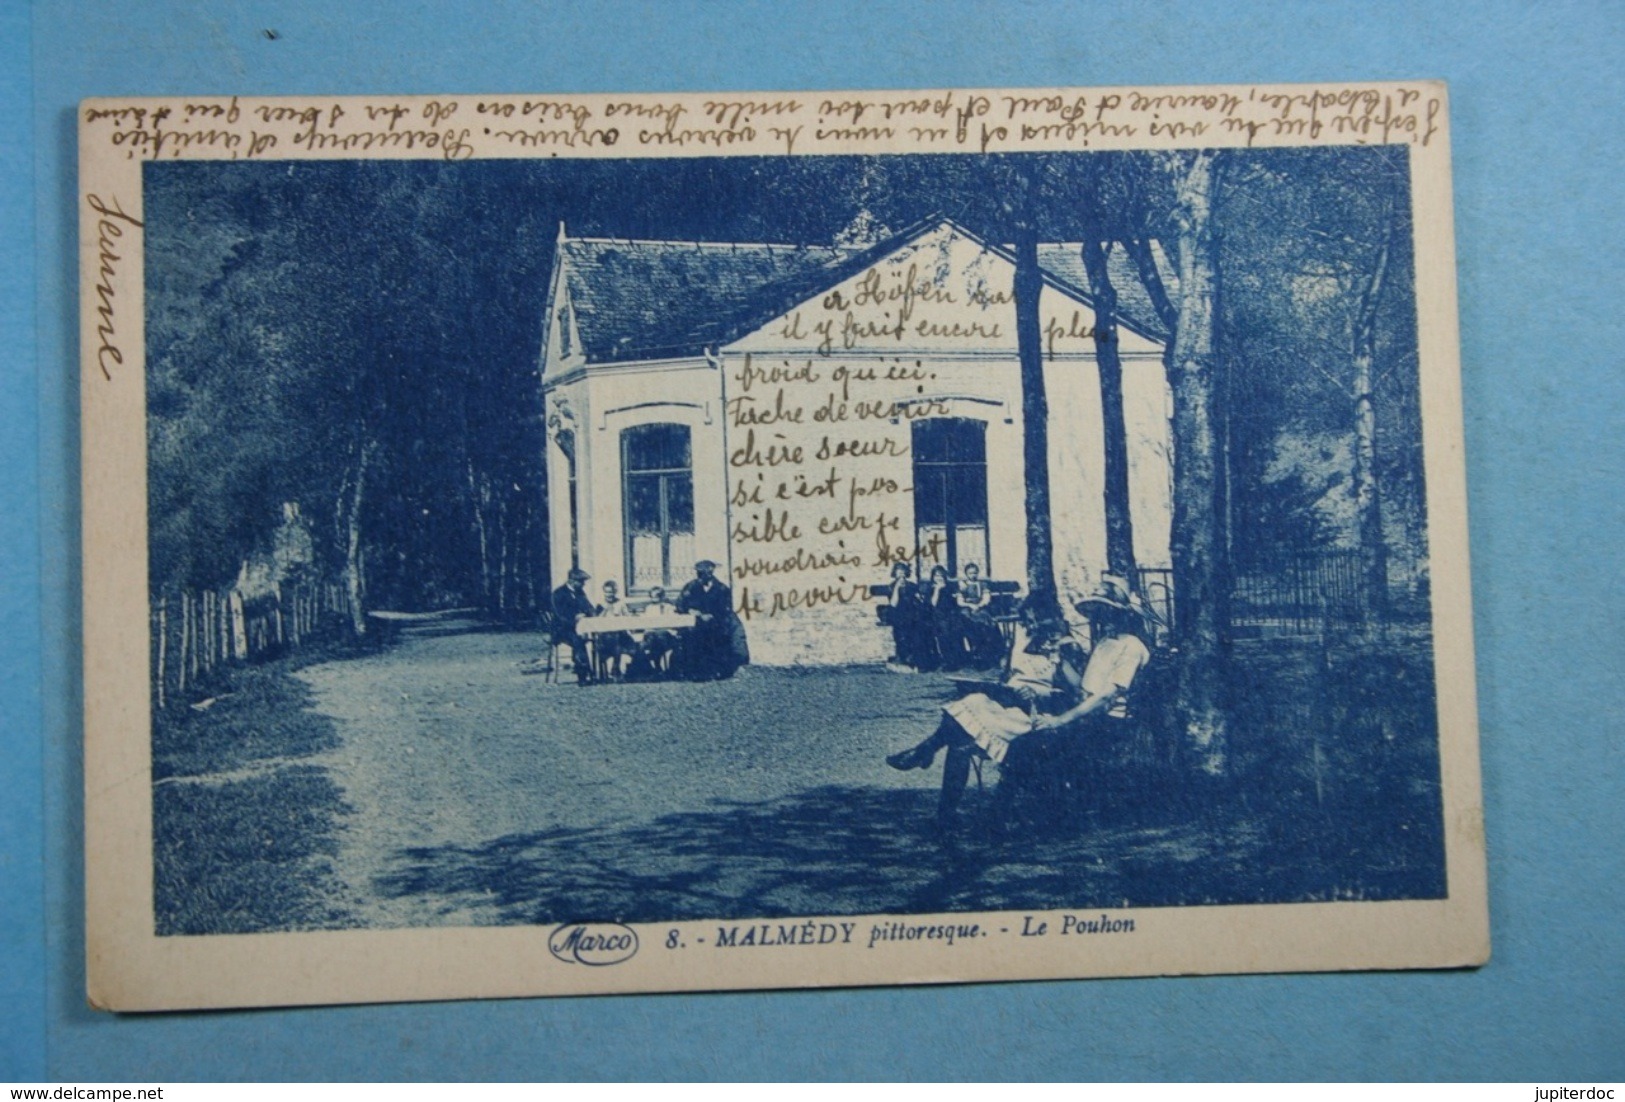 J'espère que tu vas mieux et que nous te verrons arriver. Beaucoup d'amitiés
à Charles, Maurice et Paul et pour toi mille bons baisers de ta sœur qui t'aime
Jeanne
a Höfen car
il y fait encore plus
froid qu'ici.
Tache de venir
chère soeur
si c'est pos-
sible car je
voudrais tant
te revoir
Marco 8. - MALMÉDY pittoresque. - Le Pouhon
jupiterdoc